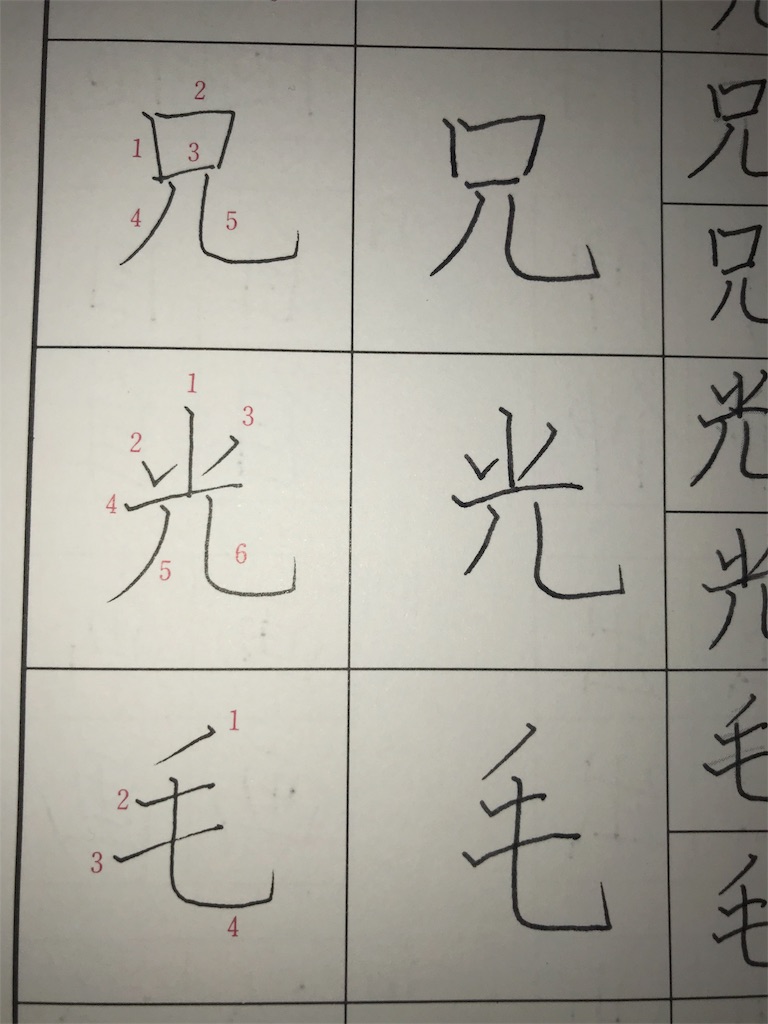 兄 兄 兄
兄
光 光 光
光
毛 毛 毛
毛
1 2 3 4 5
1 2 3 4 5 6
1 2 3 4